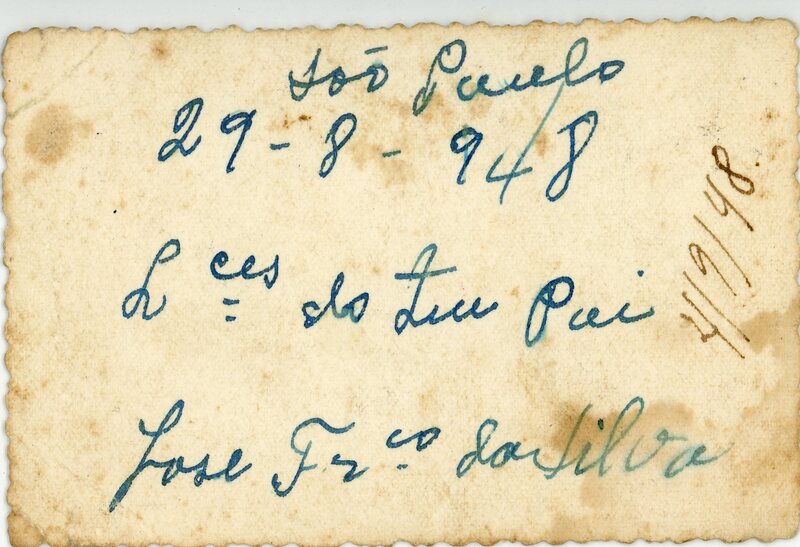 São Paulo
29-8-948
L ces do teu Pai
Jose Frco da Silva
4/9/48.